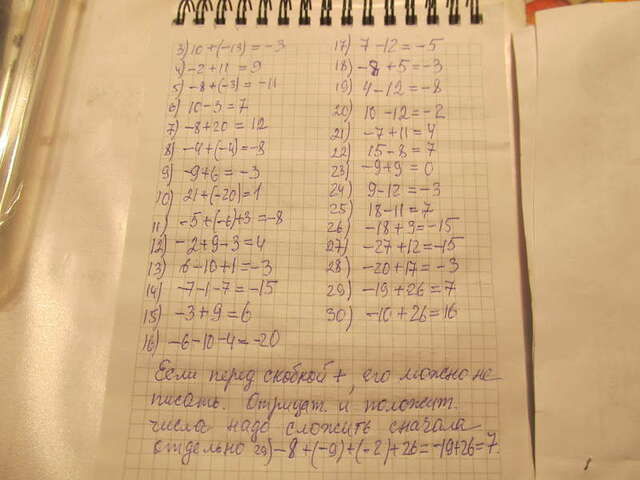 3) 10 + (-13) = -3
4) -2 + 11 = 9
5) -8 + (-3) = -11
6) 10 - 3 = 7
7) -8 + 20 = 12
8) -4 + (-4) = -8
9) -9 + 6 = -3
10) 21 + (-20) = 1
11) -5 + (-6) + 3 = -8
12) -2 + 9 - 3 = 4
13) 6 - 10 + 1 = -3
14) -7 - 1 - 7 = -15
15) -3 + 9 = 6
16) -6 - 10 - 4 = -20
17) 7 - 12 = -5
18) -8 + 5 = -3
19) 4 - 12 = -8
20) 10 - 12 = -2
21) -7 + 11 = 4
22) 15 - 8 = 7
23) -9 + 9 = 0
24) 9 - 12 = -3
25) 18 - 11 = 7
26) -18 + 3 = -15
27) -27 + 12 = -15
28) -20 + 17 = -3
29) -19 + 26 = 7
30) -10 + 26 = 16
Если перед скобкой +, его можно не
писать. Отрицат. и положит.
числа надо сложить сначала
отдельно 29) -8 + (-9) + (-2) + 26 = -19 + 26 = 7.